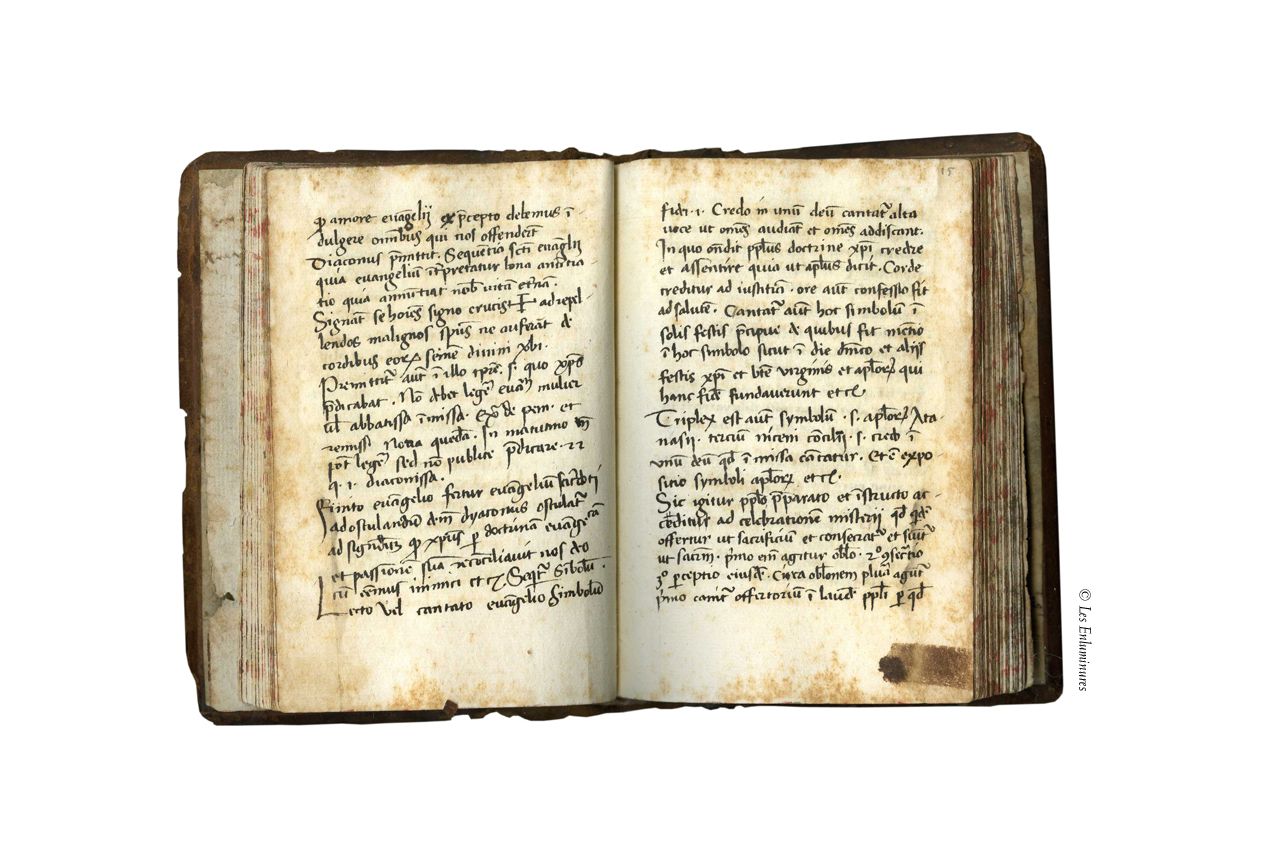 amore euāgelij ex p̄cepto debemus ī-
dulgere omībus qui nos offenderēt
Diaconus p̄mittit. Sequētia scti euāglij
quia euangeliū īt̄pretatur bona ānūtia-
tio quia annūtiat nob̄ vitā et̄nā.
Signāt se hoīes signo crucis ☩ ad repel-
lendos malignos spūs ne auferāt de
cordibus eorꝝ semē diuini
Premittit̄ aūt ī illo tp̄re. s. quo xp̄s
p̄dicabat. Nō debet leger̄ euāḡ mulier
ul̄ abbatissa ī missa. de pen. et
remiss. Nona quedā. In matutino
pōt leger̄ sed nō publice p̄dicare.
q. 1. diaconissa.
Finito euāgelio fertur euāgeliū
ad ostulandū dyaconus ostulat̄
ad signādū xp̄us ꝑ doctrinā euāge
et passionē suā recōciliauit nos deo
cū eēmus inimici et cꝫ
Lecto vel cantato euāgelio simbolū
15
fidei. i. Credo in unū deū cantat̄ alta
uoce ut omēs audiāt et omēs addiscant.
In quo ōndit pplūs doctrine xp̄i credere
et assentire quia ut aplūs dicit. Corde
creditur ad iustitiā. ore aūt confessio fit
ad salutē. Cantat̄ aūt hoc simbolū ī
solis festis p̄cipue de quibus fit mētio
ī hoc simbolo sicut ī die dn̄ico et alijs
festis xp̄i et btē virginis et aplorꝝ qui
hanc fidē fundauerunt et cꝫ
Triplex est aūt symbolū. s. aplorꝝ Ata-
nasij. terciū nicem cōcilij. s. credo ī
unū deū qd̄ ī missa cātatur. Et ē expo-
sitio symboli aplorꝝ et cꝫ.
Sic igitur pplō p̄parato et īstructo ac-
ceditur ad celebrationē misterij qd̄ qidē
offertur ut sacrificiū et consecrat̄ et
ut sacrm̄. p̄mo em̄ agitur oblō. 2º 9secr̄tio
3º ꝑceptio eiusdē. Circa oblōnem plura agūt̄
p̄mo canit̄ offertoriū ī laudē pplī ꝑ qd̄
© Les Enluminures